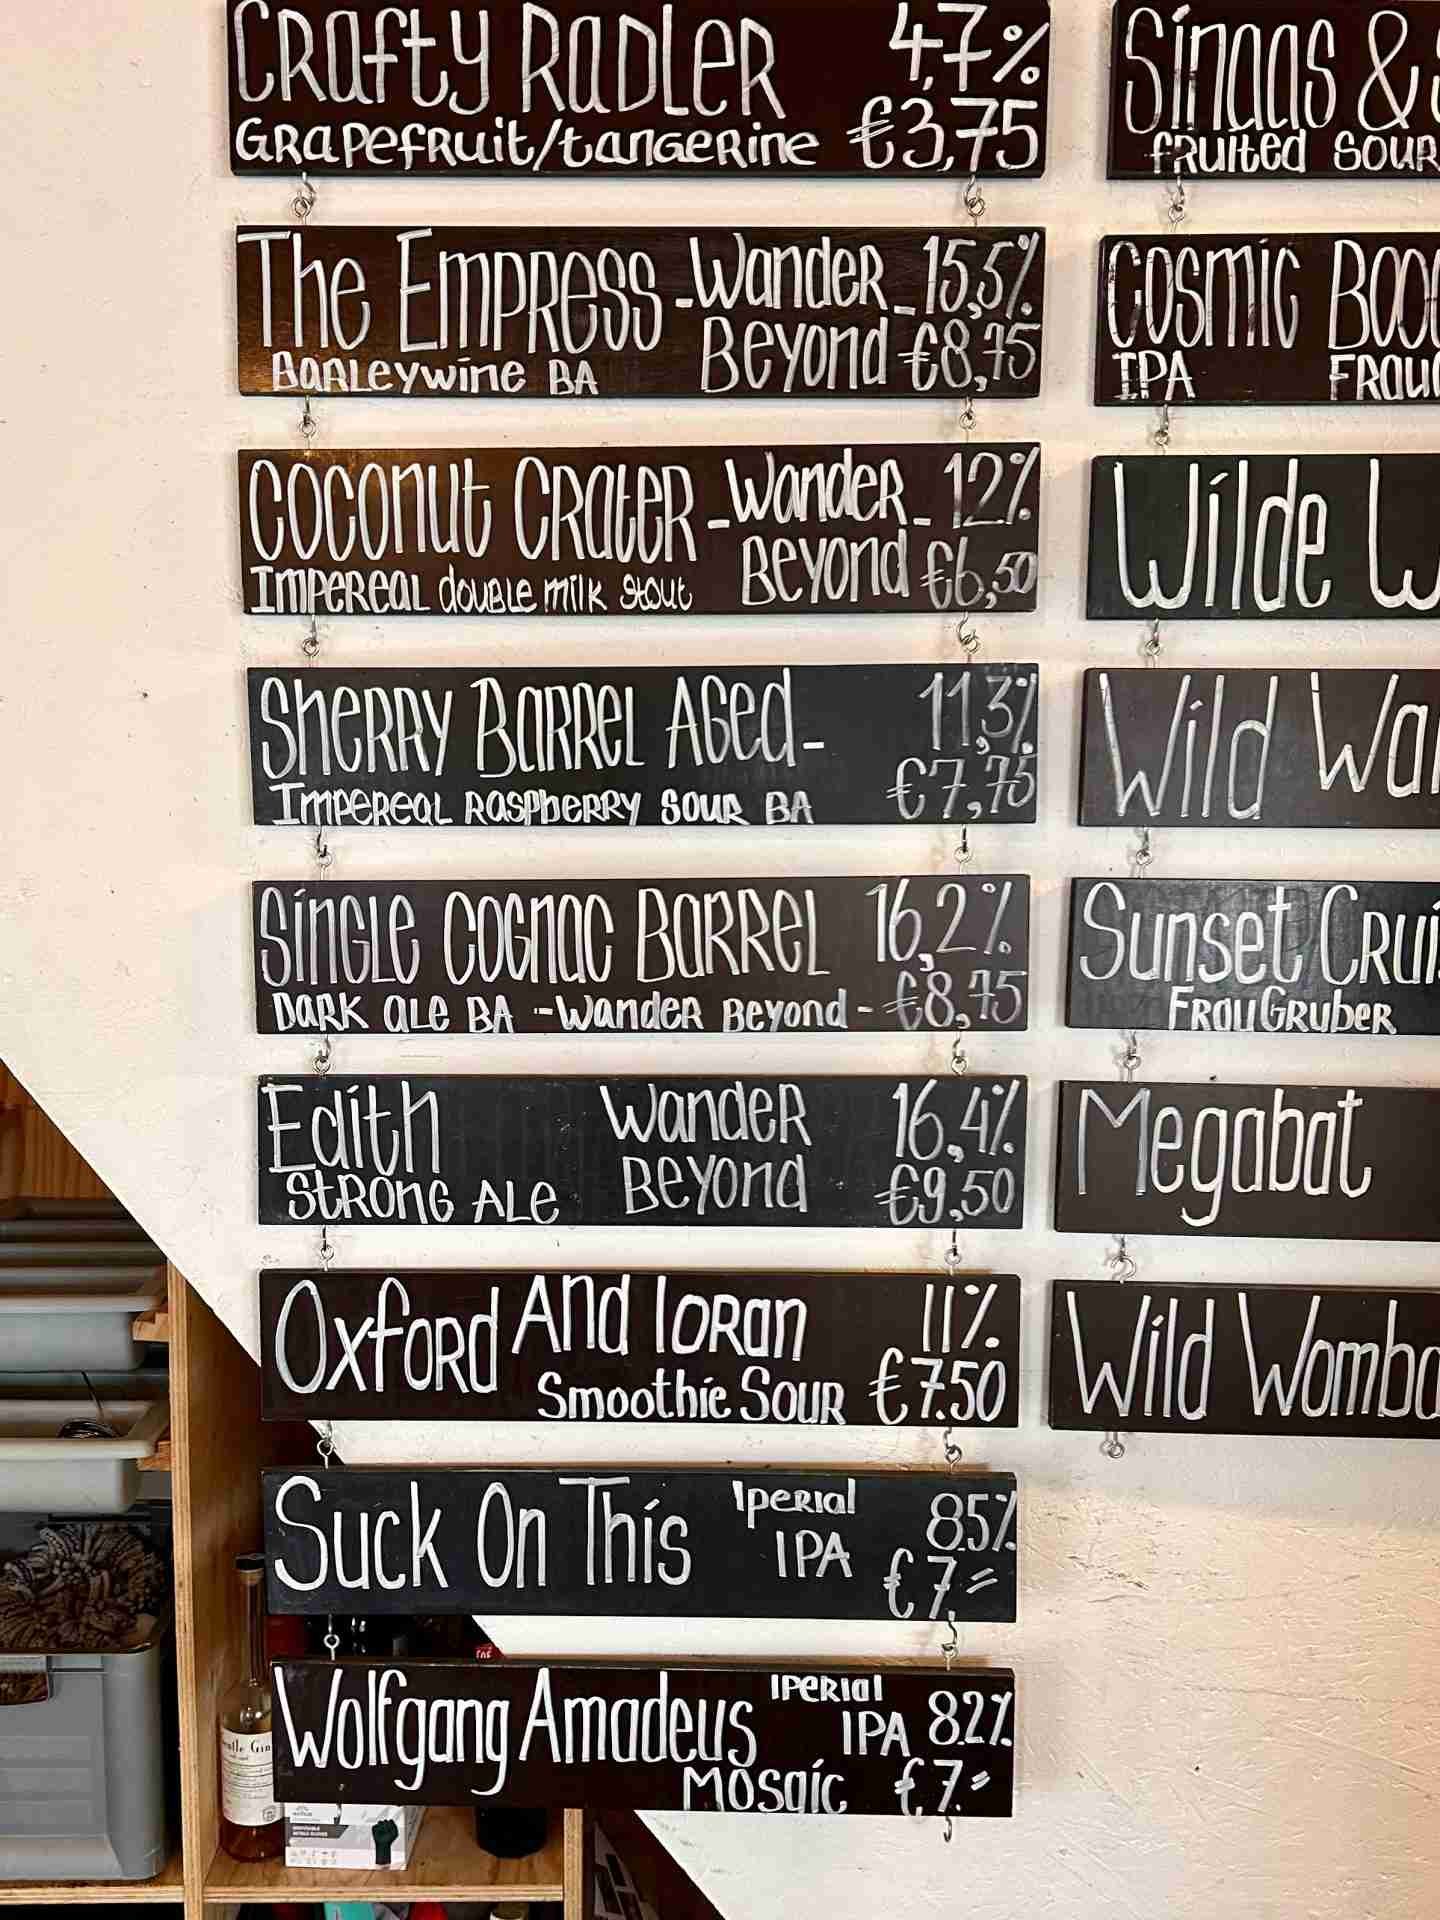 Crafty Radler 4,7%
Grapefruit/tangerine €3,75
The Empress - Wander - 15,5%
Barleywine BA Beyond €8,75
Coconut Crater - Wander - 12%
Impereal double milk stout Beyond €6,50
Sherry Barrel Aged - 11,3%
Impereal Raspberry Sour BA €7,75
Single Cognac Barrel 16,2%
Dark Ale BA - Wander Beyond - €8,75
Edith Wander 16,4%
Strong Ale Beyond €9,50
Oxford And Ioran 11%
Smoothie Sour €7.50
Suck On This Iperial 8.5%
IPA €7,=
Wolfgang Amadeus Iperial IPA 8.2%
Mosaic €7.=
Sinaas &
fruited sour
Cosmic
IPA
Wilde
Wild
Sunset
FrauGruber
Megabat
Wild
Gin